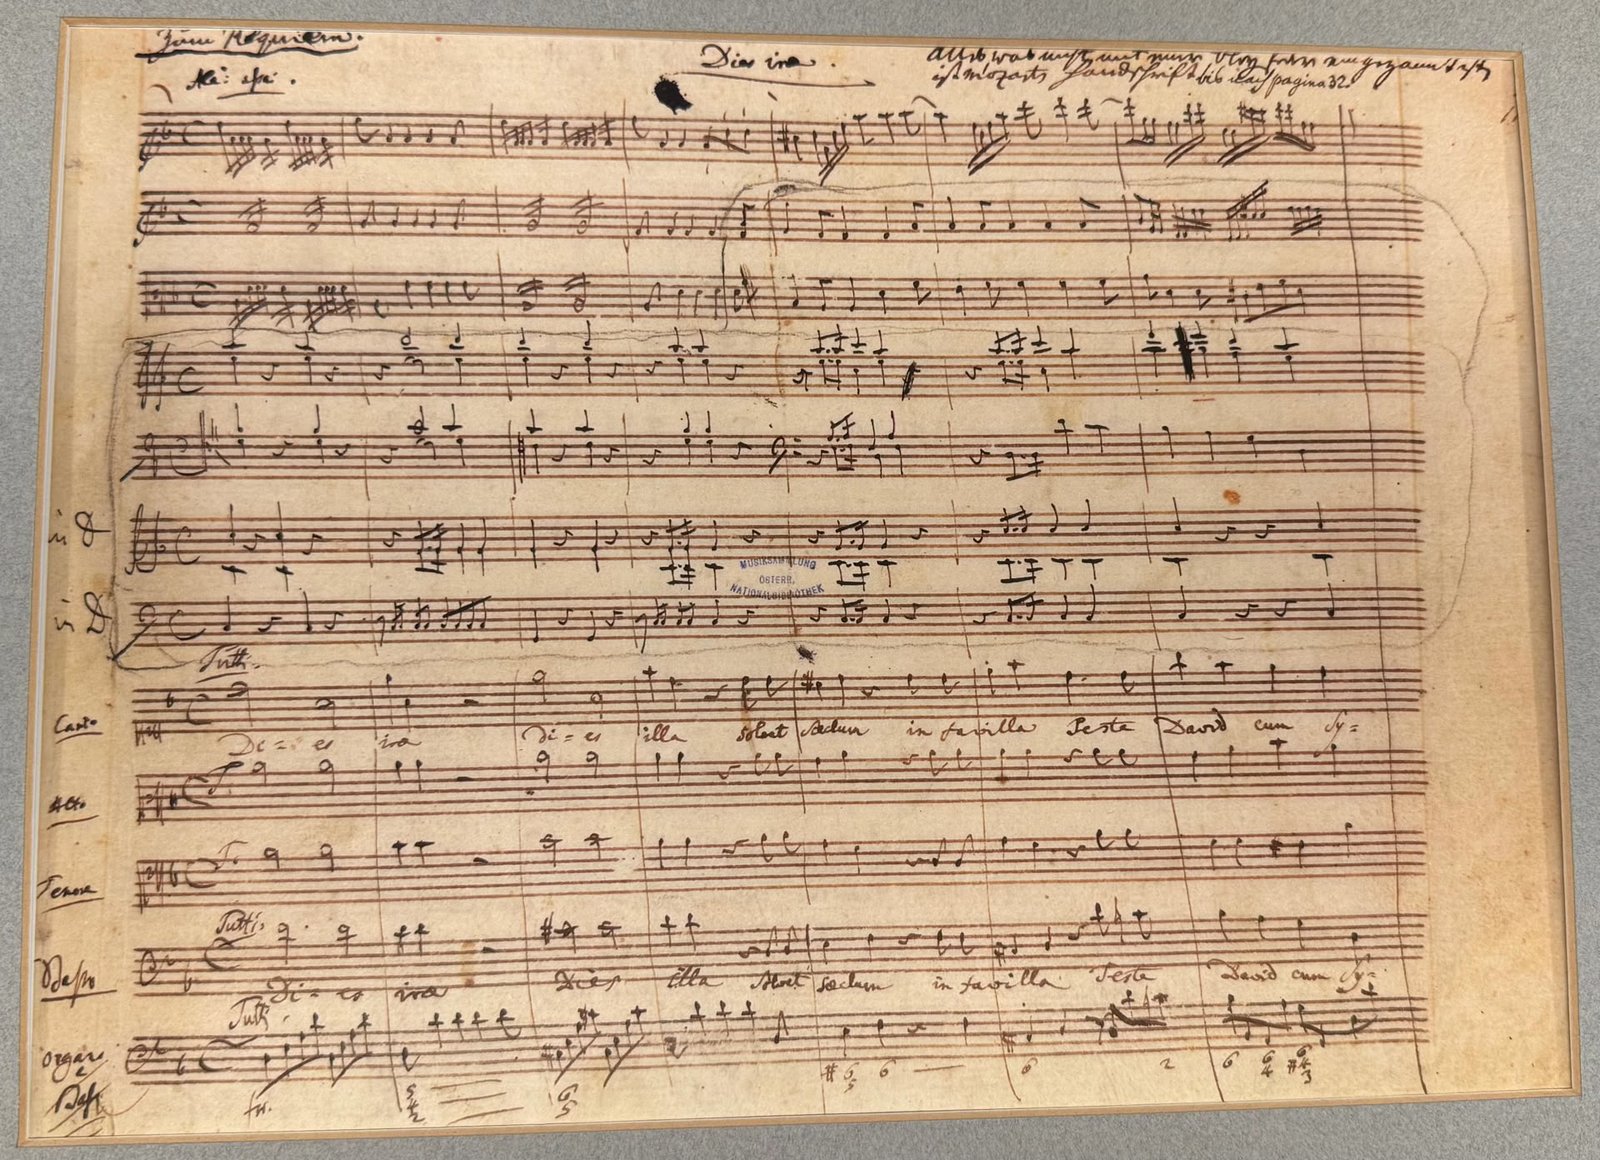 Zum Requiem.
Dies irae.
Alles was nicht mit einer Bley feder eingezaunt ist,
ist Mozarts Handschrift bis nach pagina 32.
All: assai.
in D
MUSIKSAMMLUNG
ÖSTERR.
NATIONALBIBLIOTHEK
in D
Tutti
Canto
Di = es ira Di = es illa solvet Saeclum in favilla Teste David cum Sy=
Alto
Tenore
Tutti
Basso
Di = es ira Dies illa Solvet saeclum in favilla Teste David cum Sy=
Tutti
organo
e
Bassi